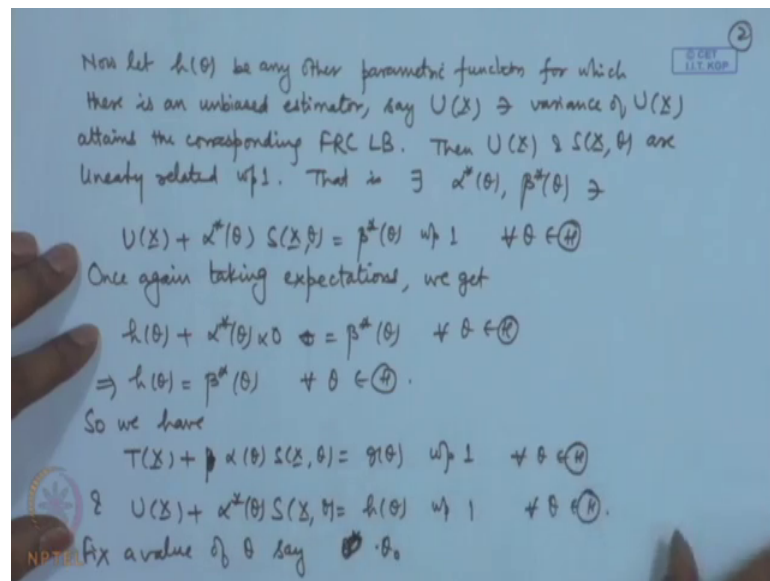 ②
© CET
I.I.T. KGP
Now let h(θ) be any other parametric function for which
there is an unbiased estimator, say U(X) ∋ variance of U(X)
attains the corresponding FRC LB. Then U(X) & S(X, θ) are
linearly related w.p.1. That is ∃ α*(θ), β*(θ) ∋
U(X) + α*(θ) S(X,θ) = β*(θ) w.p. 1 ∀ θ ∈ Ⓗ
Once again taking expectations, we get
h(θ) + α*(θ) × 0 = β*(θ) ∀ θ ∈ Ⓗ
⇒ h(θ) = β*(θ) ∀ θ ∈ Ⓗ.
So we have
T(X) + α(θ) S(X, θ) = g(θ) w.p. 1 ∀ θ ∈ Ⓗ
& U(X) + α*(θ) S(X, θ) = h(θ) w.p. 1 ∀ θ ∈ Ⓗ.
Fix a value of θ say θ₀
NPTEL